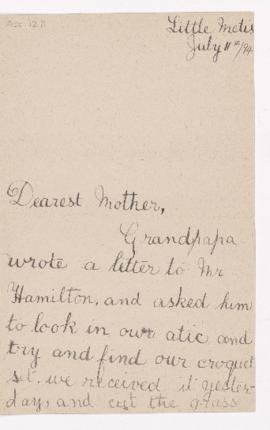 Little Metis
July 11th/94
Dearest Mother,
Grandpapa
wrote a letter to Mr
Hamilton, and asked him
to look in our atic and
try and find our croquet
set. we received it yester-
day, and cut the grass